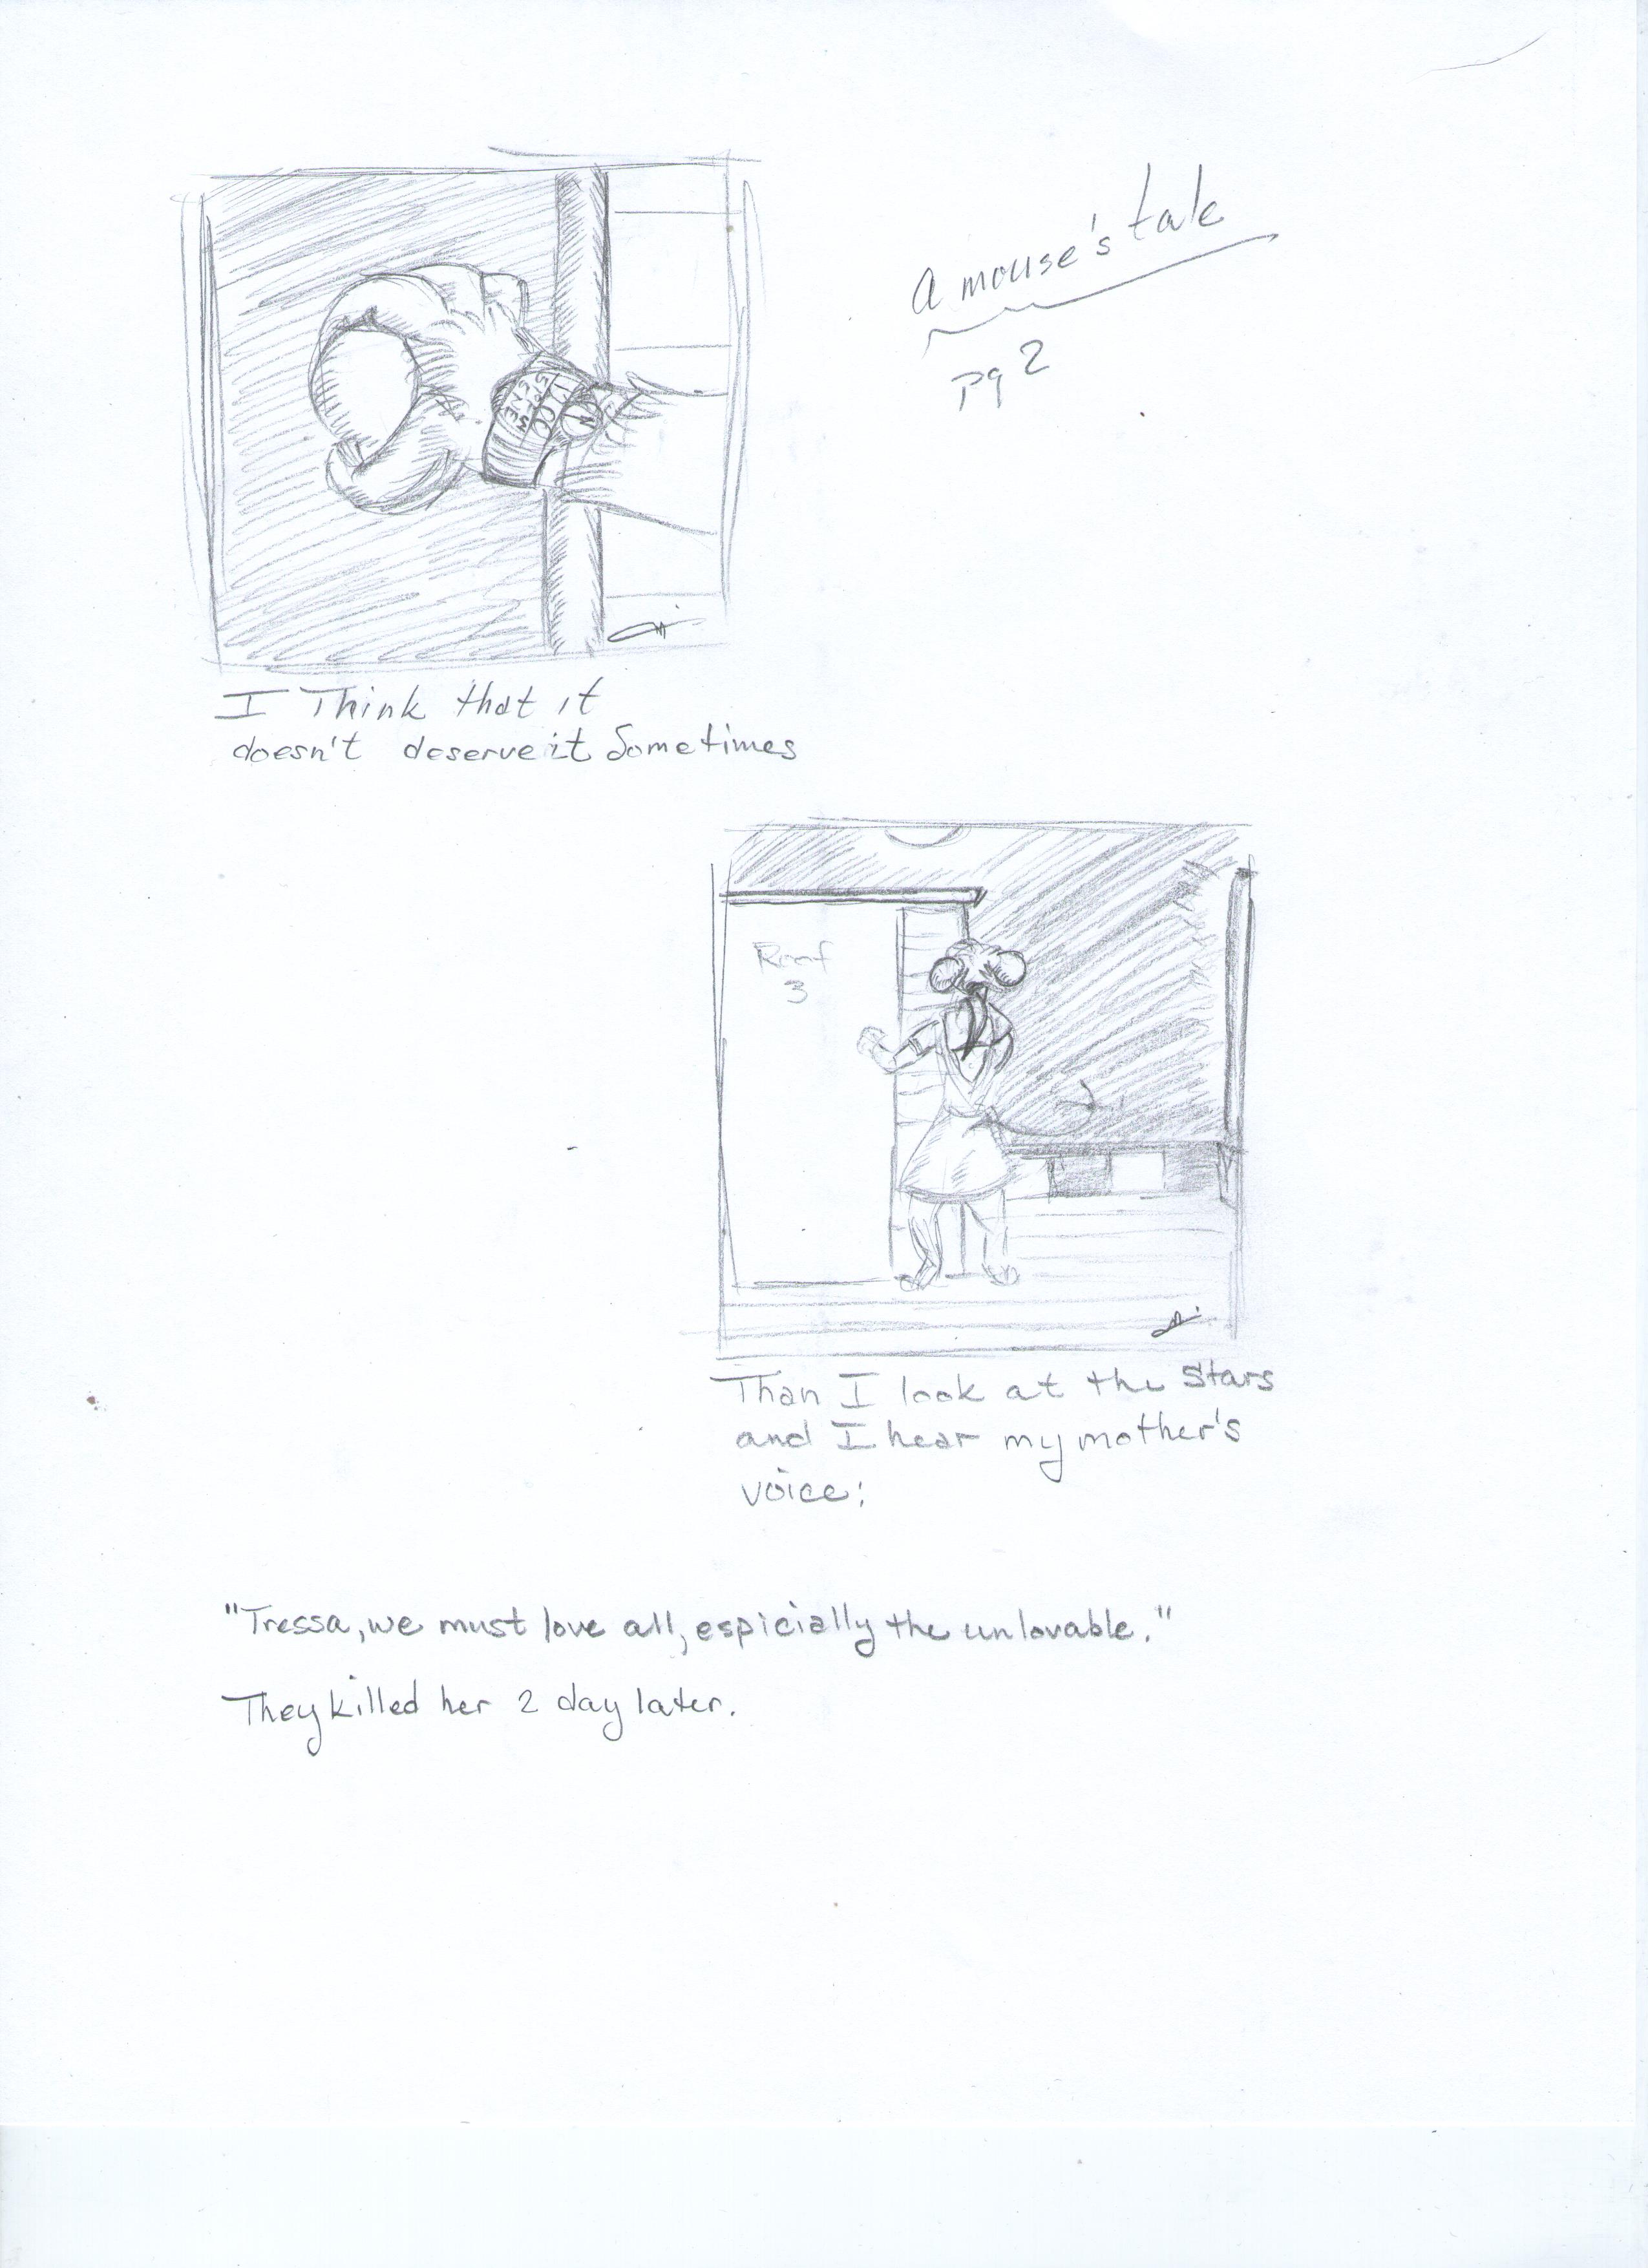 a mouse's tale
pg 2
I Think that it
doesn't deserve it Sometimes
Roof
3
Than I look at the Stars
and I hear my mother's
voice:
"Tressa, we must love all, espicially the unlovable."
They killed her 2 day later.